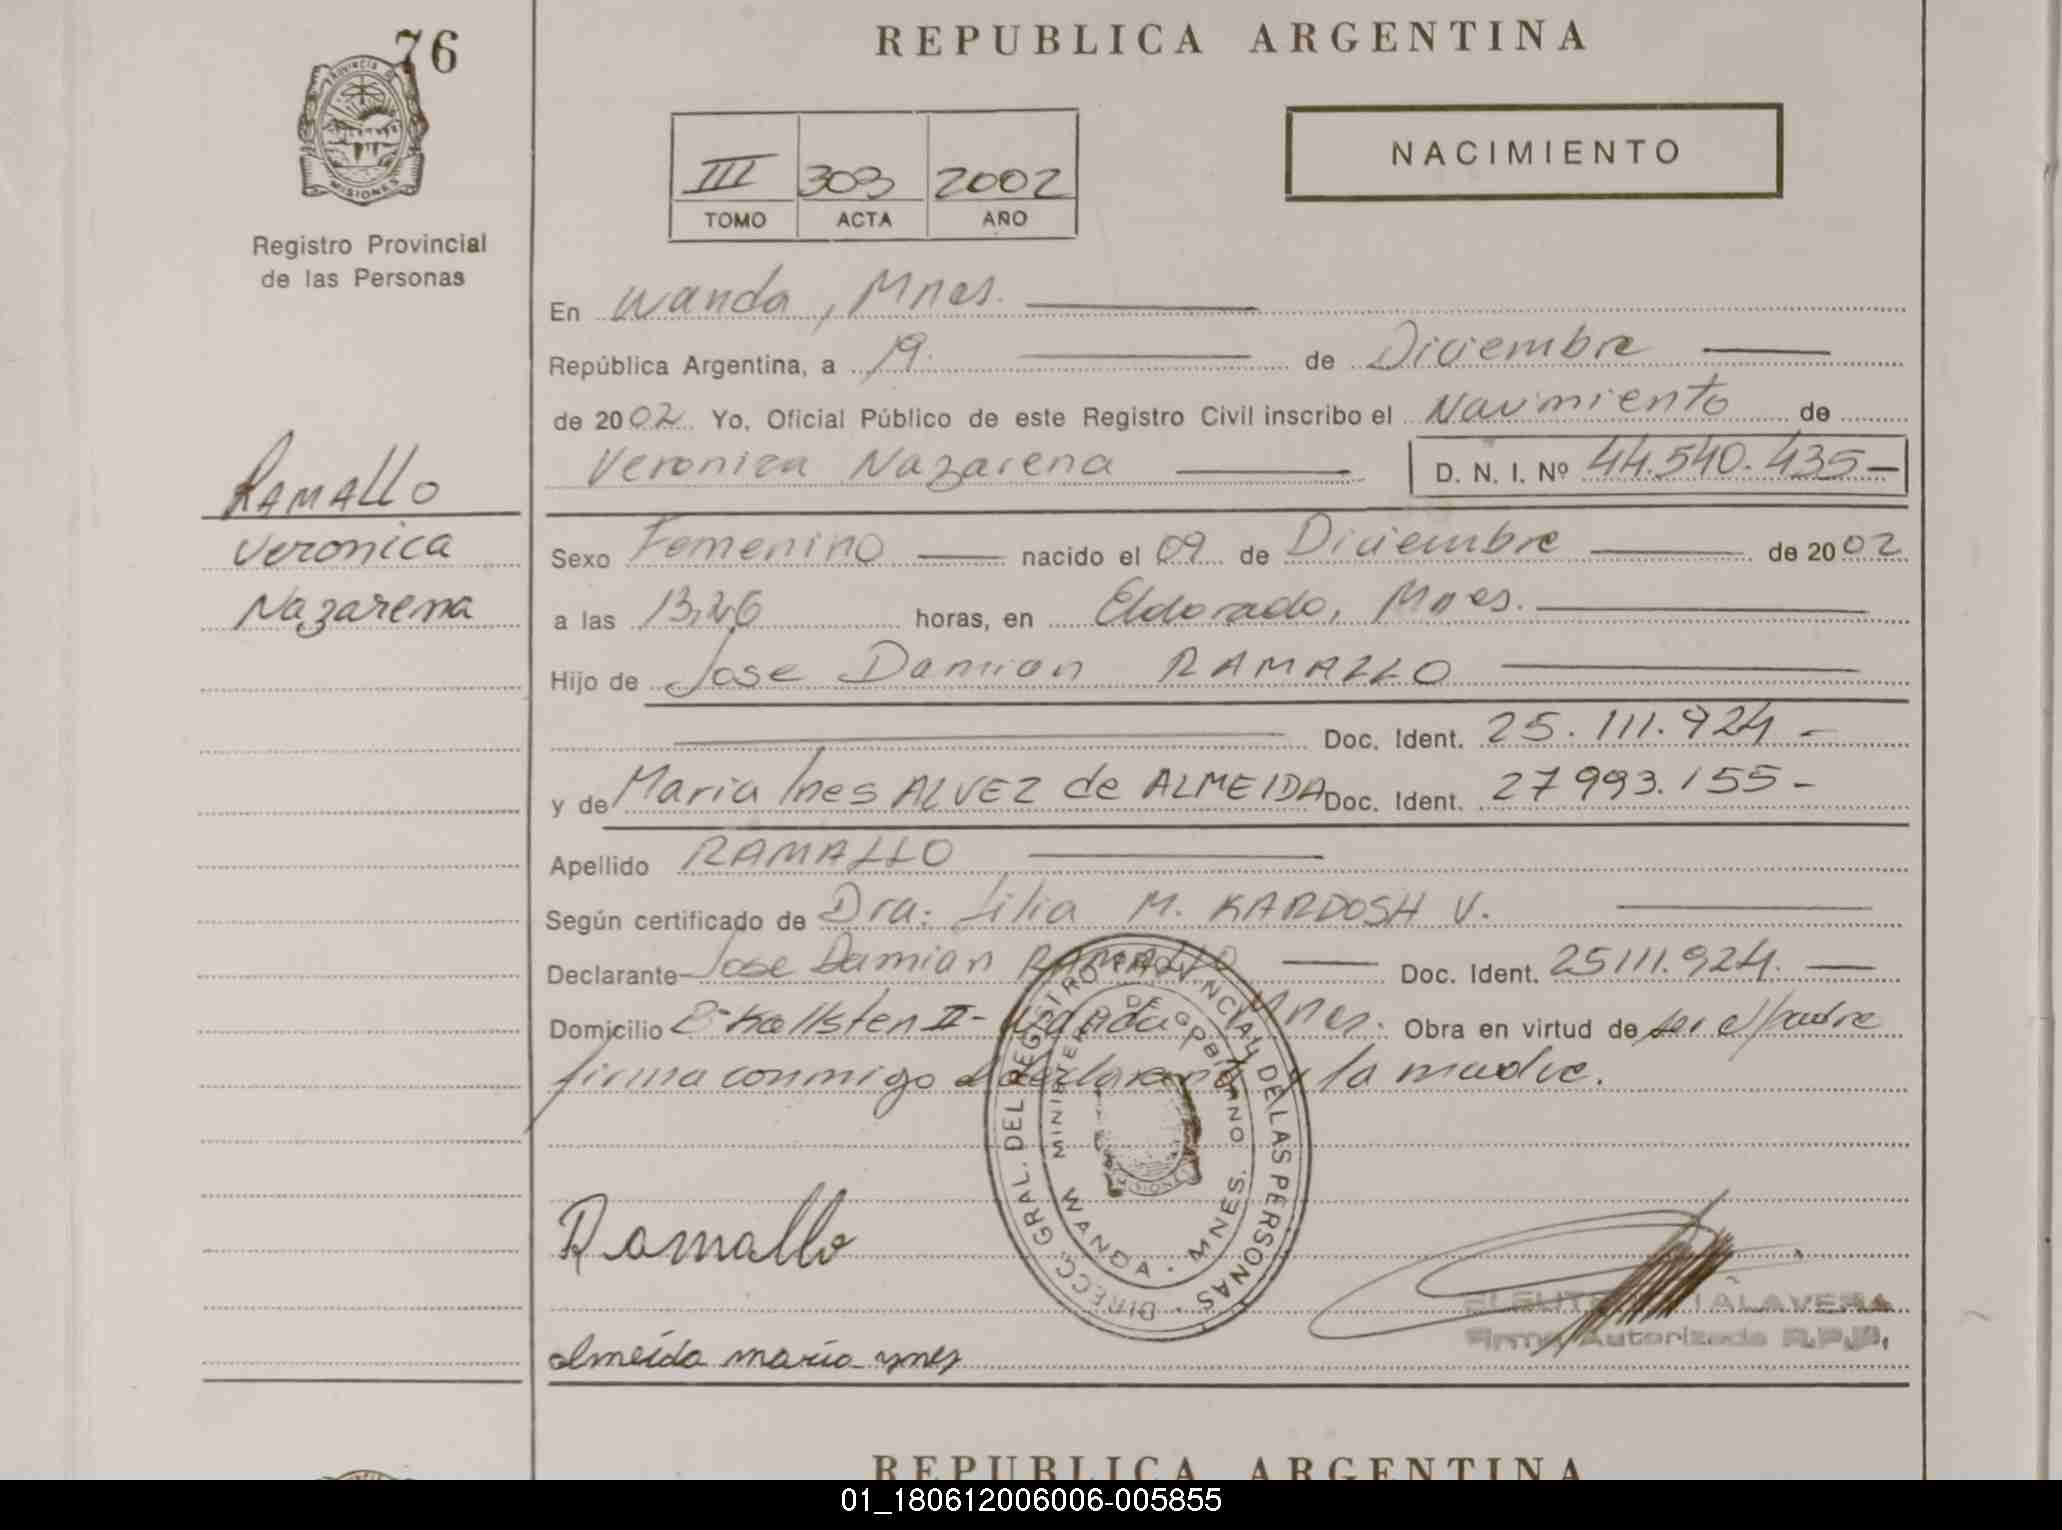 76
REPUBLICA ARGENTINA
PROVINCIA DE
MISIONES
III 303 2002
TOMO ACTA AÑO
NACIMIENTO
Registro Provincial
de las Personas
En Wanda, Mnes.
República Argentina, a 19. de Diciembre
de 2002 Yo, Oficial Público de este Registro Civil inscribo el Nacimiento de
Veronica Nazarena D. N. I. Nº 44.540.435-
RAMALLO
Veronica
Nazarena
Sexo Femenino nacido el 09 de Diciembre de 2002
a las 13,26 horas, en Eldorado, Mnes.
Hijo de Jose Damian RAMALLO
Doc. Ident. 25.111.924-
y de Maria Ines ALVEZ de ALMEIDA Doc. Ident. 27993.155-
Apellido RAMALLO
Según certificado de Dra: Lilia M. KARDOSH V.
Declarante Jose Damian RAMALLO Doc. Ident. 25111.924.
Domicilio Kallsten II- Wanda Mnes. Obra en virtud de ser el padre
firma conmigo el declarante y la madre.
DIRECC. GRAL. DEL REGISTRO PROVINCIAL DE LAS PERSONAS
MINISTERIO DE GOBIERNO
WANDA - MNES.
MISIONES
Ramallo
TALAVERA
Firma Autorizada R.P.P.
almeida maria ynes
REPUBLICA ARGENTINA
01_180612006006-005855